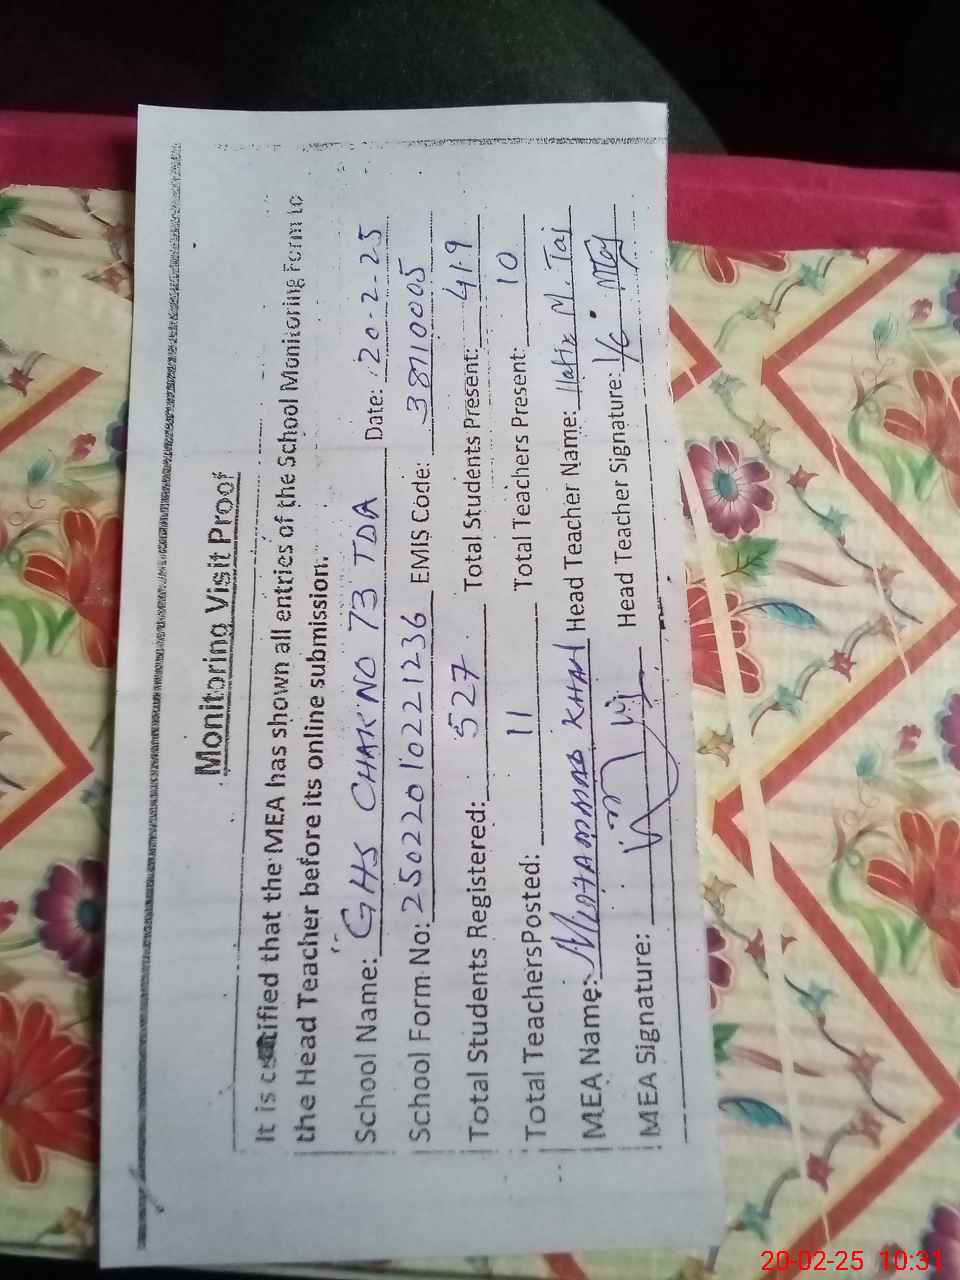 Monitoring Visit Proof
It is certified that the MEA has shown all entries of the School Monitoring Form to
the Head Teacher before its online submission.
School Name: GHS CHAK NO 73 TDA Date: 20-2-25
School Form No: 250220102212 36 EMIS Code: 38710005
Total Students Registered: 527 Total Students Present: 419
Total TeachersPosted: 11 Total Teachers Present: 10
MEA Name: MUHAMMAD KHAN Head Teacher Name: M. Taj
MEA Signature: Head Teacher Signature:
20-02-25 10:31